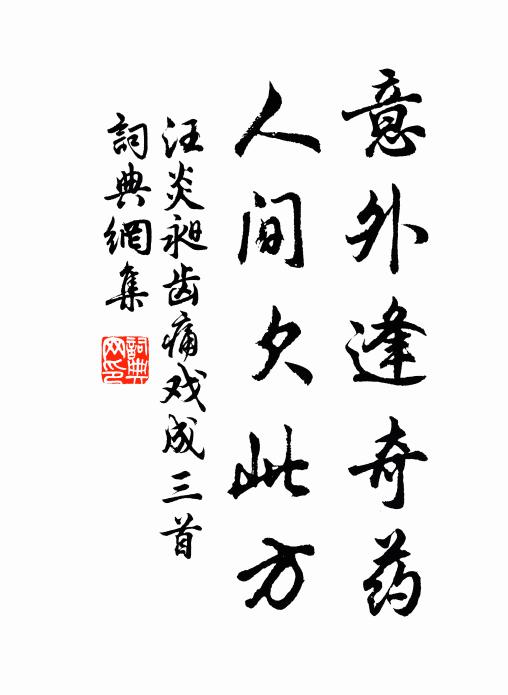 意外逢奇药
人间欠此方
汪炎昶齿痛戏成三首
詞典網集
詞典网印